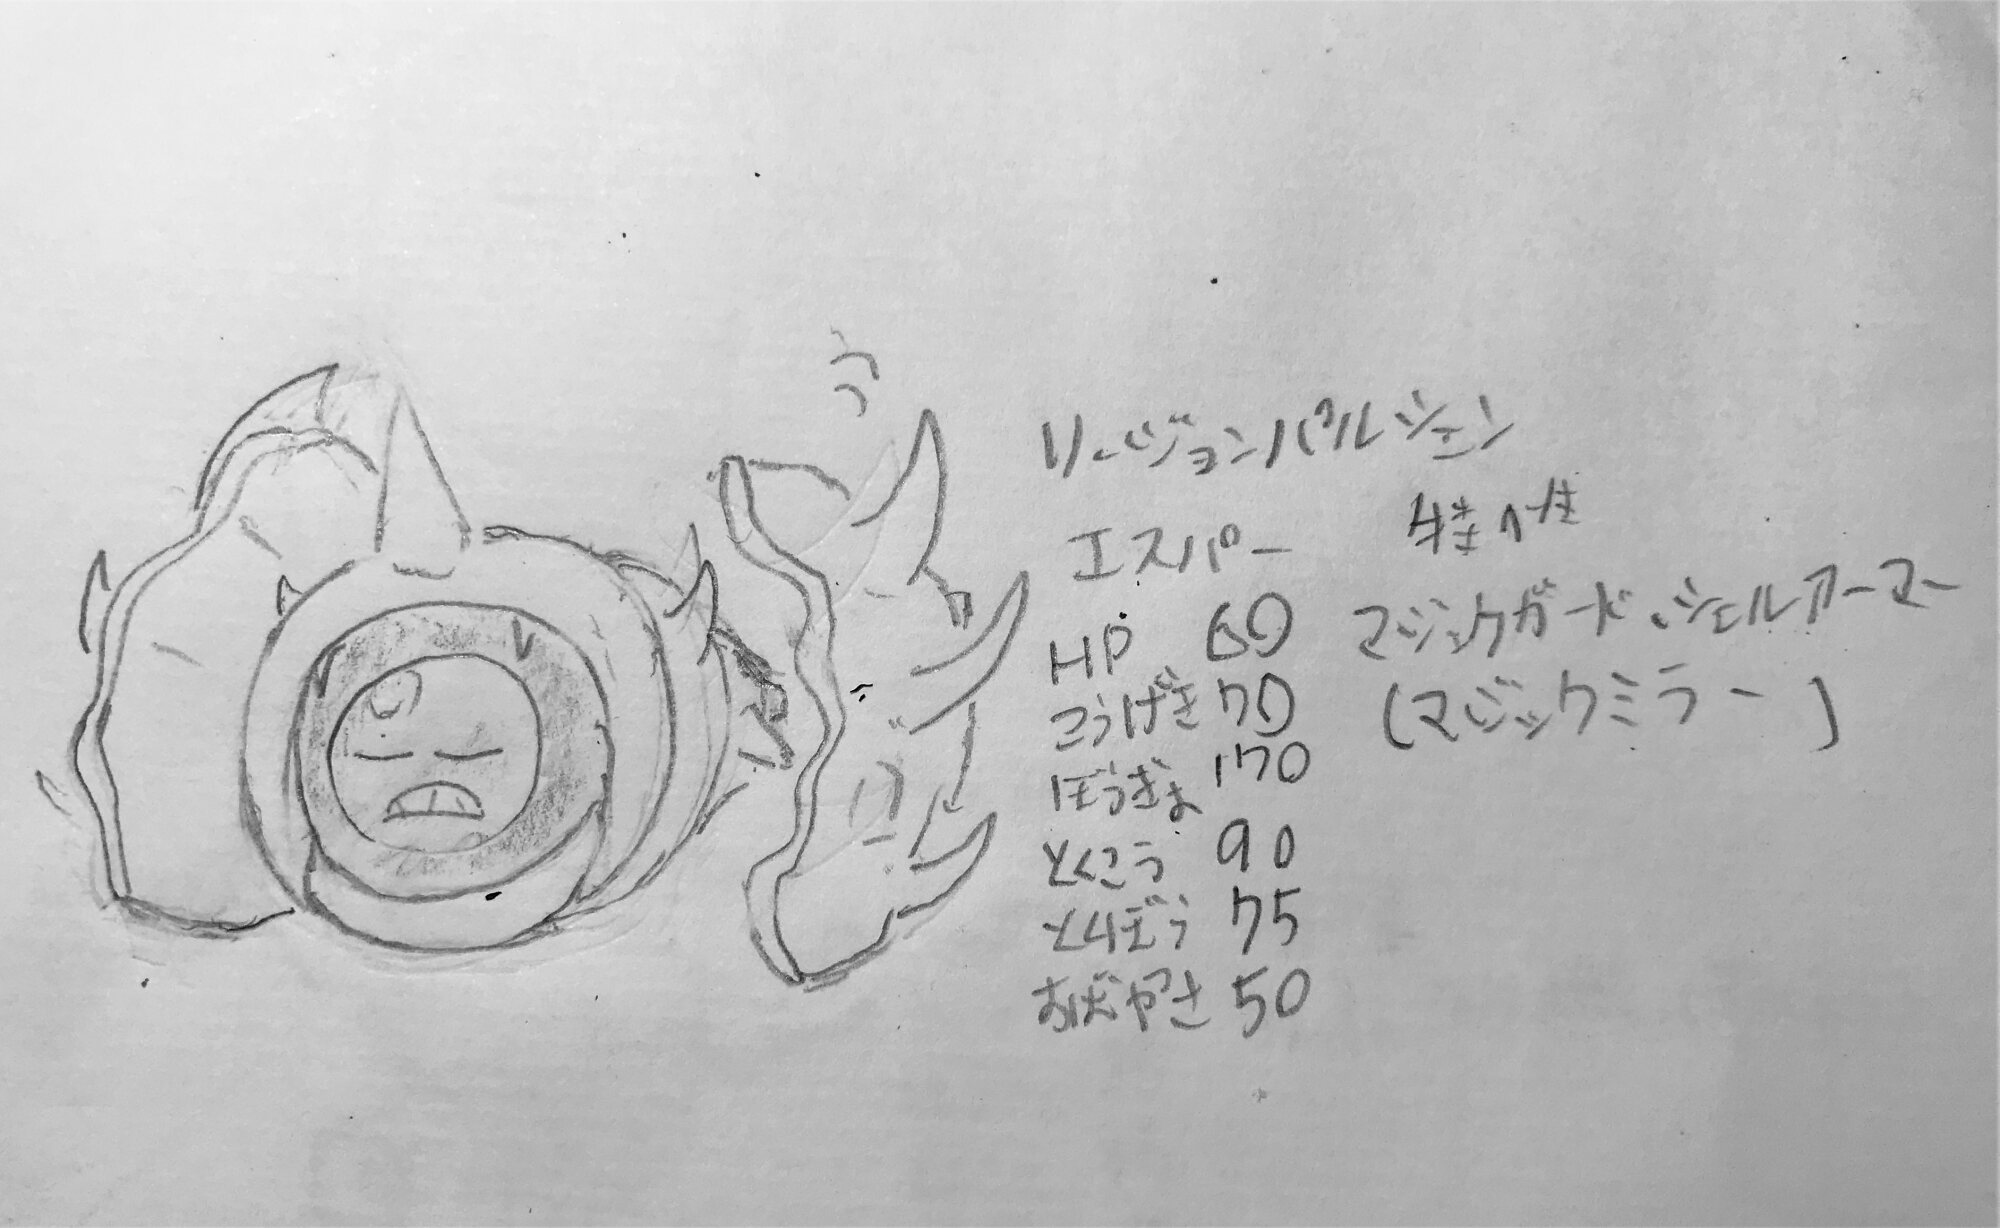 リージョンパルシェン
エスパー 特性
HP 60 マジックガード シェルアーマー
こうげき 70 (マジックミラー)
ぼうぎょ 170
とくこう 90
とくぼう 75
すばやさ 50